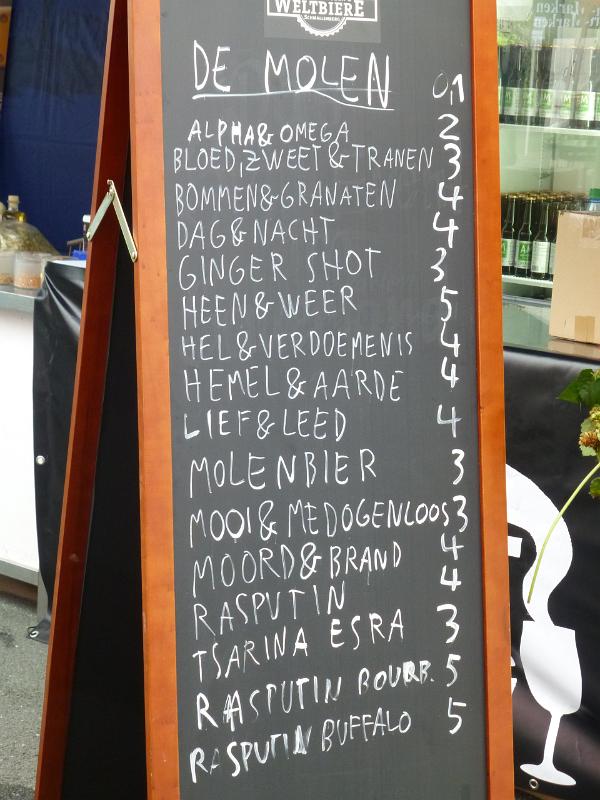 WELTBIERE
SCHMALLENBERG
DE MOLEN 0,1
ALPHA & OMEGA 2
BLOED, ZWEET & TRANEN 3
BOMMEN & GRANATEN 4
DAG & NACHT 4
GINGER SHOT 3
HEEN & WEER 5
HEL & VERDOEMENIS 4
HEMEL & AARDE 4
LIEF & LEED 4
MOLENBIER 3
MOOI & MEDOGENLOOS 3
MOORD & BRAND 4
RASPUTIN 4
TSARINA ESRA 3
RASPUTIN BOURB. 5
RASPUTIN BUFFALO 5